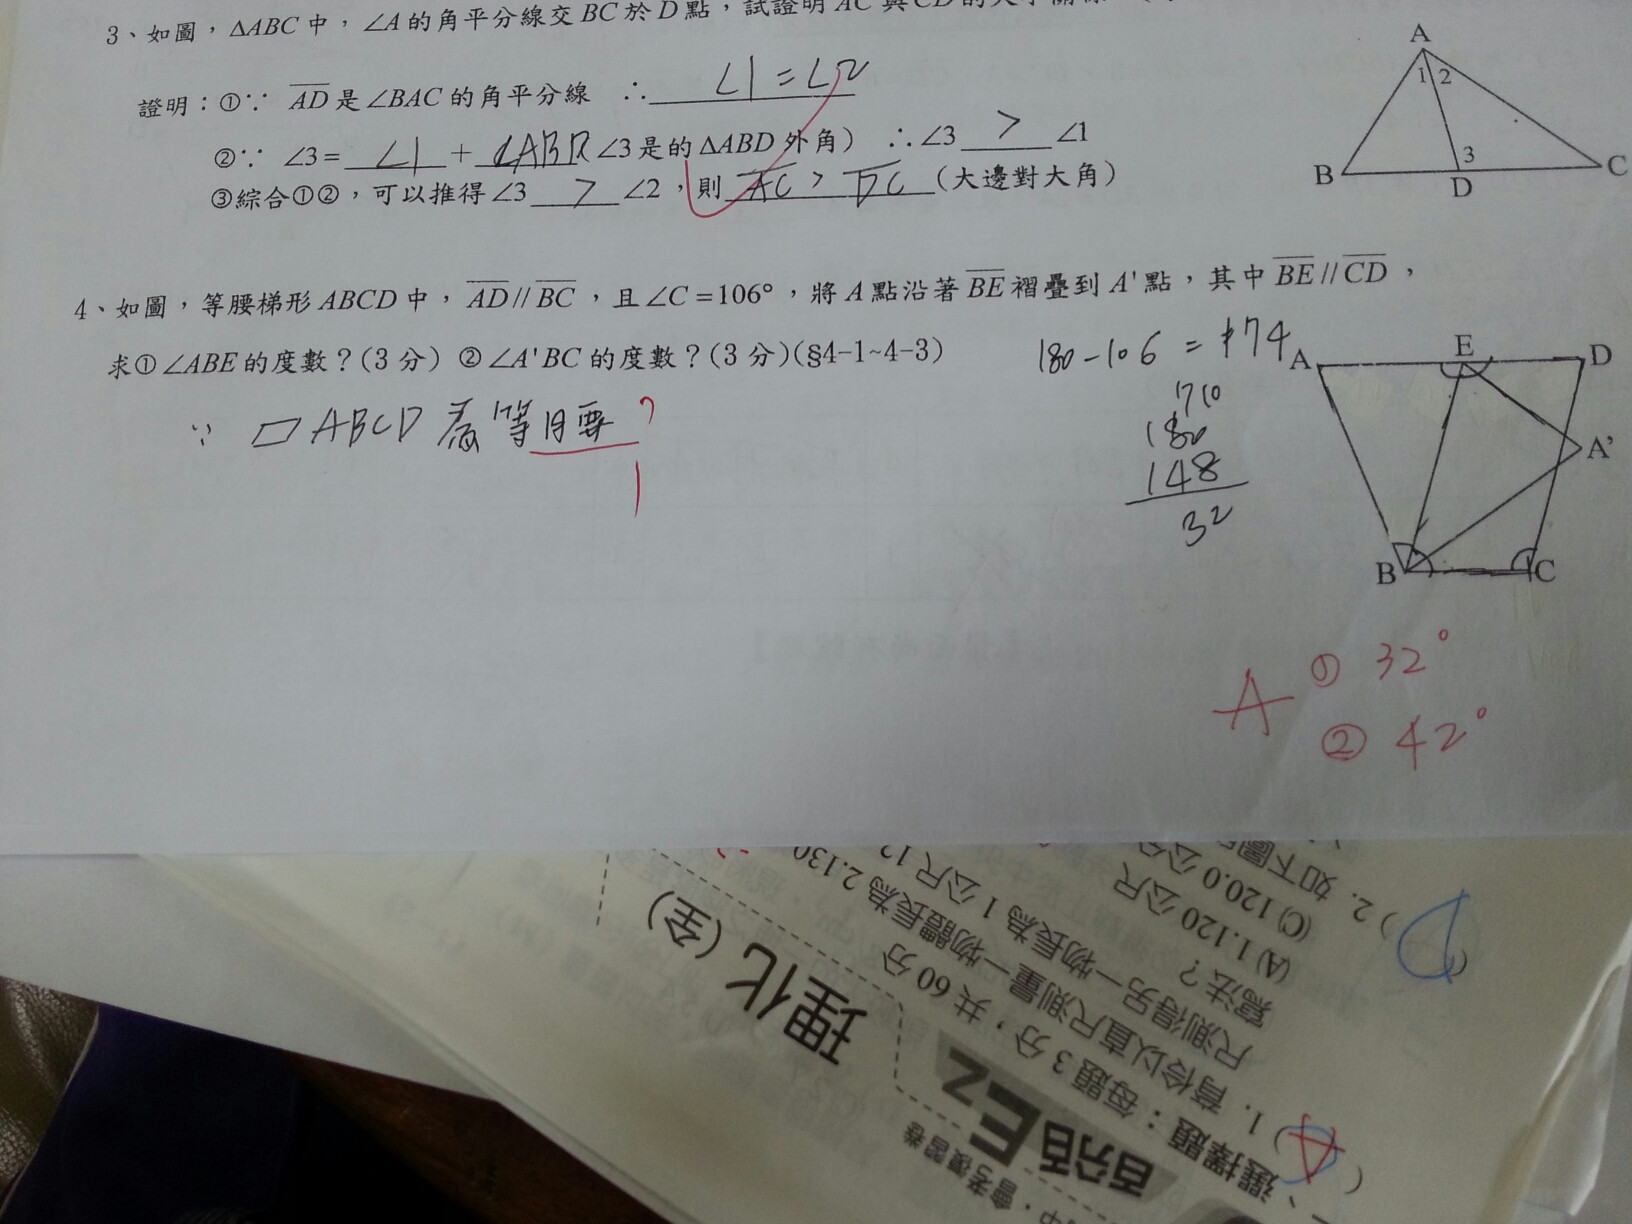 3、如圖，ΔABC中，∠A的角平分線交BC於D點，試證明AC與CD的大小關係
證明：①∵ AD是∠BAC的角平分線 ∴ ∠1=∠2
②∵ ∠3= ∠1 + ∠ABD ∠3是的ΔABD外角） ∴∠3 > ∠1
③綜合①②，可以推得∠3 > ∠2，則 AC > DC (大邊對大角)
A
1 2
3
B
D
C
4、如圖，等腰梯形ABCD中，AD//BC，且∠C=106°，將A點沿著BE褶疊到A'點，其中BE//CD，
求①∠ABE的度數？(3分) ②∠A'BC的度數？(3分)(§4-1~4-3)
180-106=74
∵ ▱ABCD為等腰?
1
710
180
148
32
A
E
D
A'
B
C
A ① 32°
② 42°
理化(全)
百分百Ez
會考複習卷
選擇題：每題3分，共60分
1.
育伶以直尺測量一物體長為2.130
公尺
尺測得另一物長為1公尺12
寫法？
(A) 1.120公尺
(C) 120.0公分
2. 如下圖